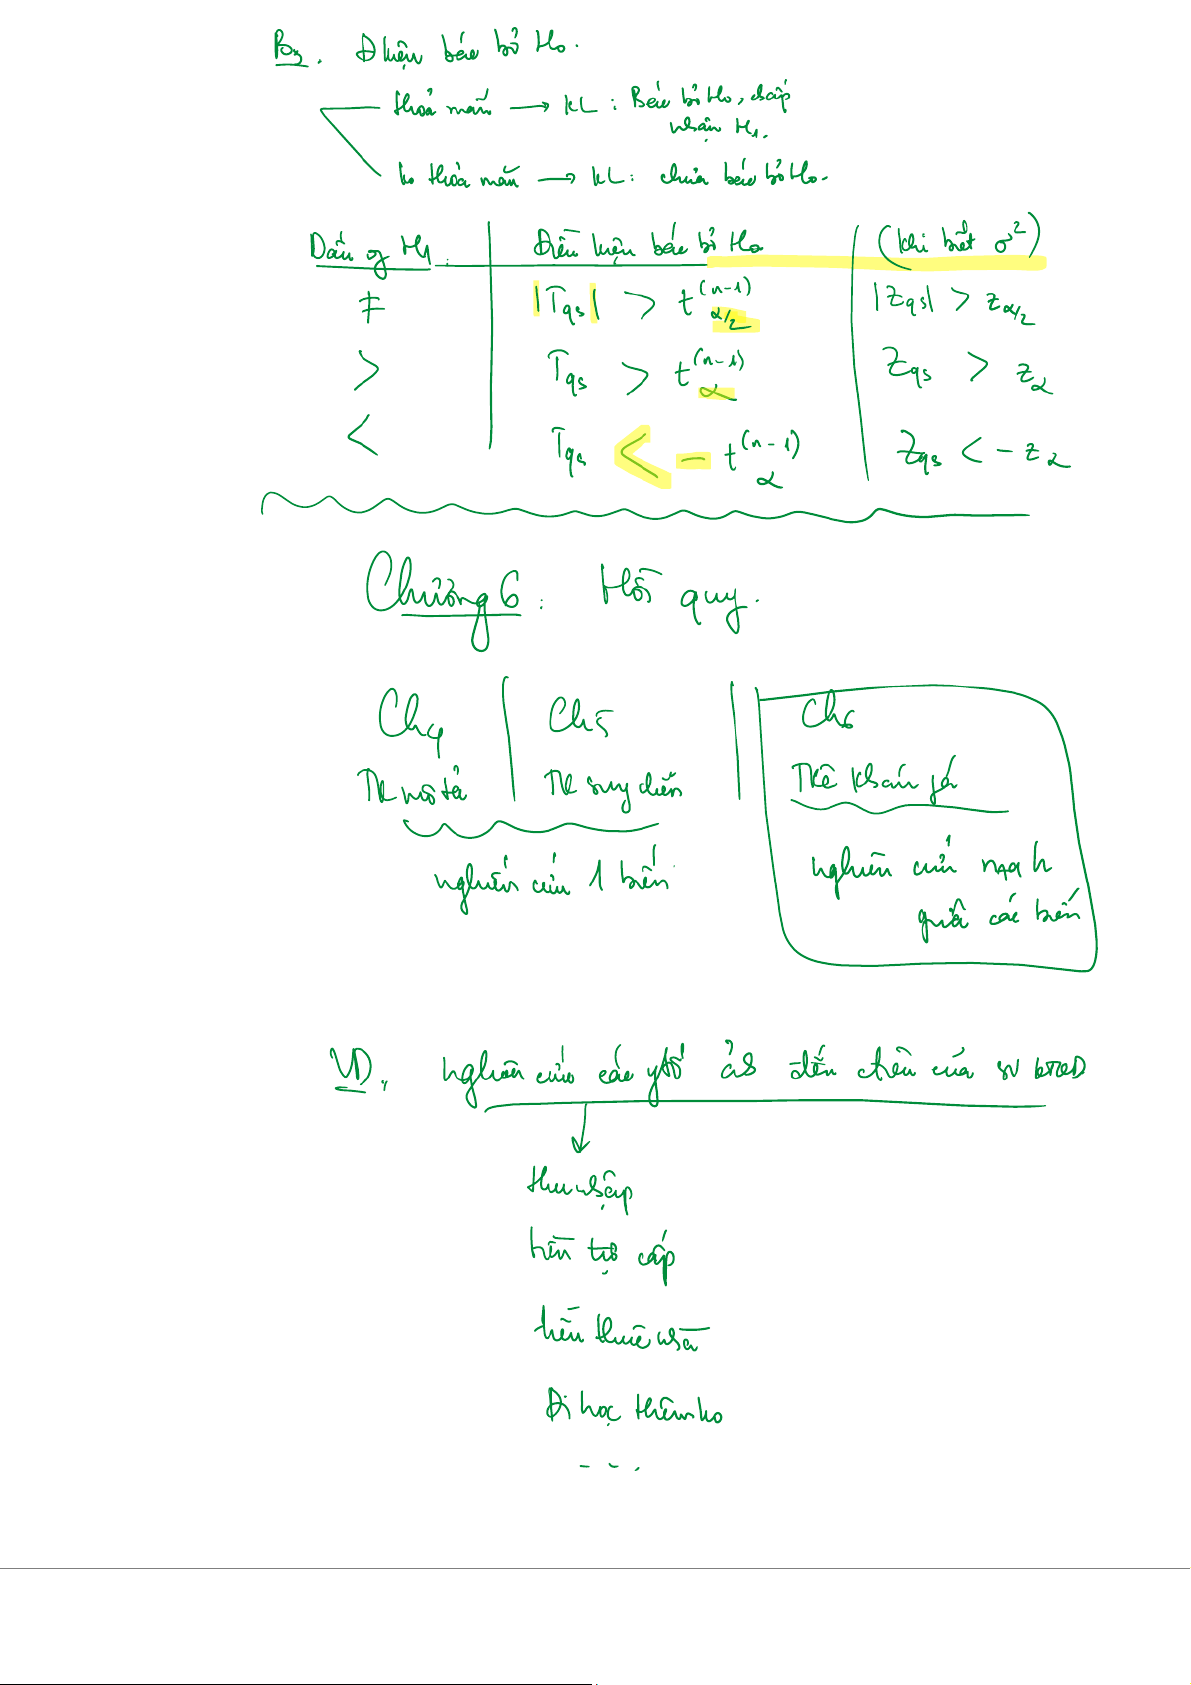 B3. Đkiện bác bỏ H₀.
thỏa mãn → KL: Bác bỏ H₀, chấp
nhận H₁.
ko thỏa mãn → KL: chưa bác bỏ H₀.
Dấu of H₁ Điều kiện bác bỏ H₀ (khi biết σ²)
≠ |Tqs| > t^(n-1) α/2 |Zqs| > z α/2
> Tqs > t^(n-1) α Zqs > z α
< Tqs < - t^(n-1) α Zqs < - z α
Chương 6: Hồi quy.
Ch4 Ch5 Ch6
TK mô tả TK suy diễn TKê
nghiên cứu 1 biến nghiên cứu
các biến
VD, nghiên cứu các ytố đến của sv
thu nhập
tiền trợ cấp
tiền thuê nhà
Đi học thêm ko
...